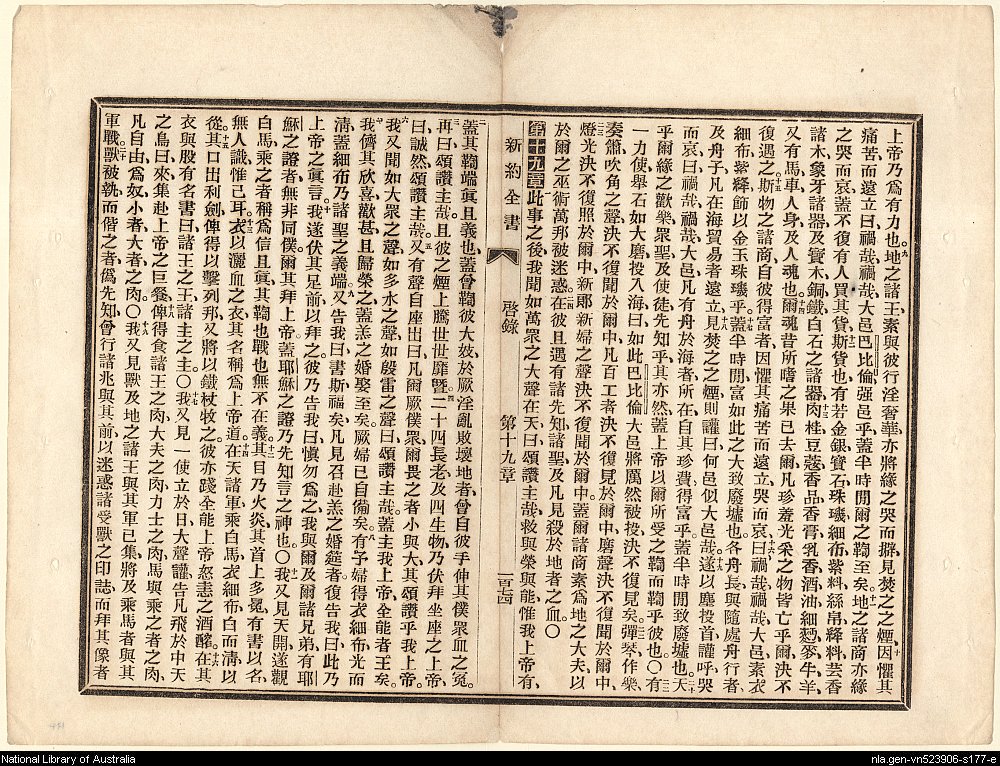 上帝乃爲有力也。地之諸王、素與彼行淫奢華、亦將緣之哭而擗、見焚之之煙、因懼其
痛苦而遠立曰、禍哉禍哉、大邑巴比倫強邑乎、蓋半時間、爾之鞫至矣、地之諸商、亦緣
之哭而哀、蓋不復有人買其貨、斯貨也、有若金銀寶石珠璣細布紫料絲帛絳料芸香
諸木象牙諸器及寶木銅鐵白石之諸器、肉桂豆蔻香品香膏乳香香酒油細麪麥牛羊、
又有馬車人身及人魂也、爾魂昔所嗜之果已去、爾凡珍羞光采之物皆亡乎爾、決不
復遇之、斯物之諸商、自彼得富者、因懼其痛苦而遠立、哭而哀曰、禍哉禍哉、大邑、素衣
細布紫絳、飾以金玉珠璣乎、蓋半時間、富如此之大、致廢墟也、各舟長與隨處舟行者、
及舟子凡在海貿易者、遠立、見焚之之煙、則讙曰、何邑似大邑哉、遂以塵投首、讙呼哭
而哀曰、禍哉禍哉、大邑、凡有舟於海者、所在自其珍貴得富乎、蓋半時間、致廢墟也、天
乎、爾緣之歡樂、衆聖及使徒先知乎、其亦然、蓋上帝以爾所受之鞫而鞫乎彼也。〇有
一力使、舉石如大磨、投入海曰、如此巴比倫大邑、將厲然被投、決不復見矣、彈琴作樂
奏簫吹角之聲、決不復聞於爾中、凡百工者、決不復見於爾中、磨聲決不復聞於爾中、
燈光決不復照於爾中、新郎新婦之聲、決不復聞於爾中、蓋爾諸商素爲地之大夫、以
於爾之巫術、萬邦被迷惑、在彼且遇有諸先知諸聖及凡見殺於地者之血。〇
第十九章 此事之後、我聞如萬衆之大聲在天曰、頌讚主哉、救與榮與能、惟我上帝有、
新約全書 啓錄 第十九章 一百七四
蓋其鞫端眞且義也、蓋曾鞫彼大妓、於厥淫亂敗壞地者、曾自彼手伸其僕衆血之冤、
再曰、頌讚主哉、且彼之煙上騰世世靡曁、二十四長老及四生物、乃伏拜坐座之上帝
曰、誠然、頌讚主哉、又有聲自座出曰、凡爾厥僕衆、爾畏之者、小與大、其頌讚乎我上帝、
我又聞如大衆之聲、如多水之聲、如殷雷之聲曰、頌讚主哉、蓋我主上帝全能者王矣、
我儕其欣喜歡甚、且歸榮之、蓋羔之婚娶至矣、厥婦已自備矣、有予婦得衣細布光而
淸、蓋細布乃諸聖之義端、又告我曰、書斯福矣、凡見召赴羔之婚筵者、復告我曰、此乃
上帝之眞言、我遂伏其足前以拜之、彼乃告我曰、愼勿爲之、我與爾及爾諸兄弟有耶
穌之證者、無非同僕、爾其拜上帝、蓋耶穌之證、乃先知言之神也。〇我又見天開、遂觀
白馬、乘之者稱爲信且眞、其鞫也、戰也、無不在義、其目乃火炎、其首上多冕、有書以名、
無人識、惟己耳、衣以灑血之衣、其名稱爲上帝道、在天諸軍乘白馬、衣細布白而淸、以
從、其口出利劍、俾得以擊列邦、又將以鐵杖牧之、彼亦踐全能上帝怒恚之酒醡、在其
衣與股有名書曰、諸王之王、諸主之主。〇我又見一使立於日、大聲讙告凡飛於中天
之鳥曰、來集赴上帝之巨餐、俾得食諸王之肉、大夫之肉、力士之肉、馬與乘之者之肉、
凡自由、爲奴、小者、大者之肉。〇我又見獸及地之諸王與其軍已集、將及乘馬者與其
軍戰、獸被執、而偕之者僞先知、曾行諸兆與其前、以迷惑諸受獸之印誌、而拜其像者
National Library of Australia
nla.gen-vn523906-s177-e